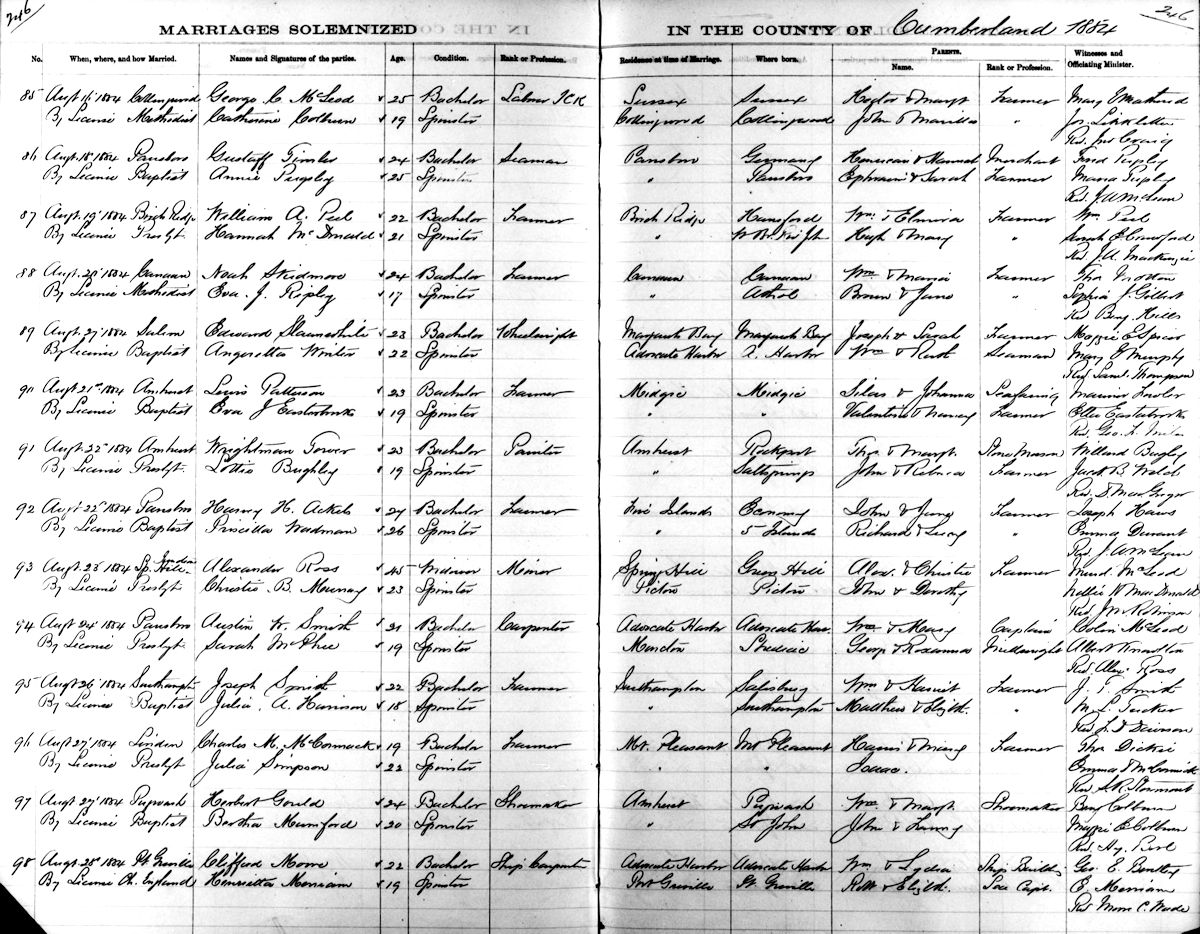 246
246
MARRIAGES SOLEMNIZED IN THE COUNTY OF Cumberland 1884
No. When, where, and how Married. Names and Signatures of the parties. Age. Condition. Rank or Profession. Residence at time of Marriage. Where born. PARENTS. Name. Rank or Profession. Witnesses and Officiating Minister.
85 Augt 16th 1884 Collingwood George C. McLeod 25 Bachelor Labour ICR Sussex Sussex Hector & Margt Farmer Mary E
By Licence Methodist Catherine 19 Spinster Collingwood Collingwood John & "
Rev. Jno Craig
86 Augt. 18th 1884 Parsboro Gustaff 24 Bachelor Seaman Parsboro Germany & Hannah Merchant
By Licence Baptist Annie Pugsley 25 Spinster " Parsboro Ephraim & Sarah Farmer
Rev. J. A. McLean
87 Augt. 19th 1884 Birch Ridge William A. Peel 22 Bachelor Farmer Birch Ridge Hansford Wm. & Elmira Farmer Wm. Peel
By Licence Presbyt. Hannah McDonald 21 Spinster " Hugh & Mary " Sarah E Crawford
Rev. J. A. Mackenzie
88 Augt. 20th 1884 Canaan Noah Skidmore 24 Bachelor Farmer Canaan Canaan Wm & Farmer Thos
By Licence Methodist Eva. J. Ripley 17 Spinster " Athol & Jane " Sophia J. Gilbert
Rev Benj. Hills
89 Augt 27th 1884 Salem Edward 23 Bachelor Wheelwright Margarets Bay Margarets Bay Joseph & Sarah Farmer Maggie E Spicer
By Licence Baptist Angeretta Winter 22 Spinster Advocate Harbor A. Harbor Wm & Ruth Seaman Mary E Murphy
Rev Saml. Thompson
90 Augt 21st 1884 Amherst Lewis Patterson 23 Bachelor Farmer Midgic Midgic Silas & Johanna Seafaring Lawler
By Licence Baptist Eva J Easterbrooks 19 Spinster " " Valentine & Nancy Farmer Ellen Easterbrooks
Rev. Geo. F.
91 Augt. 22nd 1884 Amherst Wrightman Tower 23 Bachelor Painter Amherst Rockport Thos & Margt. Stone Mason Willard
By Licence Presbyt. Lottie 19 Spinster " Saltsprings John & Rebecca Farmer Jacob B. Welch
Rev. D. MacGregor
92 Augt 22nd 1884 Parsboro Harvey H. Ackles 27 Bachelor Farmer Five Islands Economy John & Jane Farmer Joseph
By Licence Baptist Priscilla Wadman 26 Spinster " 5 Islands Richard & Lucy " Emma
Rev. J. A McLean
93 Augt. 23rd 1884 Sp. Hill Junction Alexander Ross 45 Widower Miner Spring Hill Green Hill Alex. & Christie Farmer McLeod
By Licence Presbyt. Christie B. Murray 23 Spinster Pictou Pictou John & Dorothy Nellie W MacDonald
Rev.
94 Augt 24th 1884 Parsboro Austin W. Smith 21 Bachelor Carpenter Advocate Harbor Advocate Har. Wm. & Mary Captain Colin McLeod
By Licence Presbyt. Sarah McPhee 19 Spinster Moncton Shediac George & Roxanna Millwright Albert Knowlton
Rev Alex. Ross
95 Augt 26th 1884 Southampton Joseph Smith 22 Bachelor Farmer Southampton Salisbury Wm & Harriet Farmer J. T. Smith
By Licence Baptist Julia. A. Harrison 18 Spinster " Southampton Matthew & Elizth. " M. L. Tucker
Rev J. T Dawson
96 Augt 27th 1884 Linden Charles M. McCormack 19 Bachelor Farmer Mt. Pleasant Mt Pleasant & Farmer Thos Dickie
By Licence Presbyt Julia Simpson 22 Spinster " " Isaac. Emma J McCormick
Rev
97 Augt 27th 1884 Pugwash Herbert Gould 24 Bachelor Shoemaker Amherst Pugwash Wm. & Margt. Shoemaker Benj Colburn
By Licence Baptist Bertha Mumford 20 Spinster " St John John & Fanny Maggie E Colburn
Rev Hy.
98 Augt. 28th 1884 Pt Greville Clifford Moore 22 Bachelor Ship Carpenter Advocate Harbor Advocate Harbor Wm & Lydia Ship Builder Geo. E. Bentley
By Licence Ch. England Henrietta Merriam 19 Spinster Port Greville Pt. Greville Robt & Elizth. Sea Capt. E. Merriam
Rev C. Wade